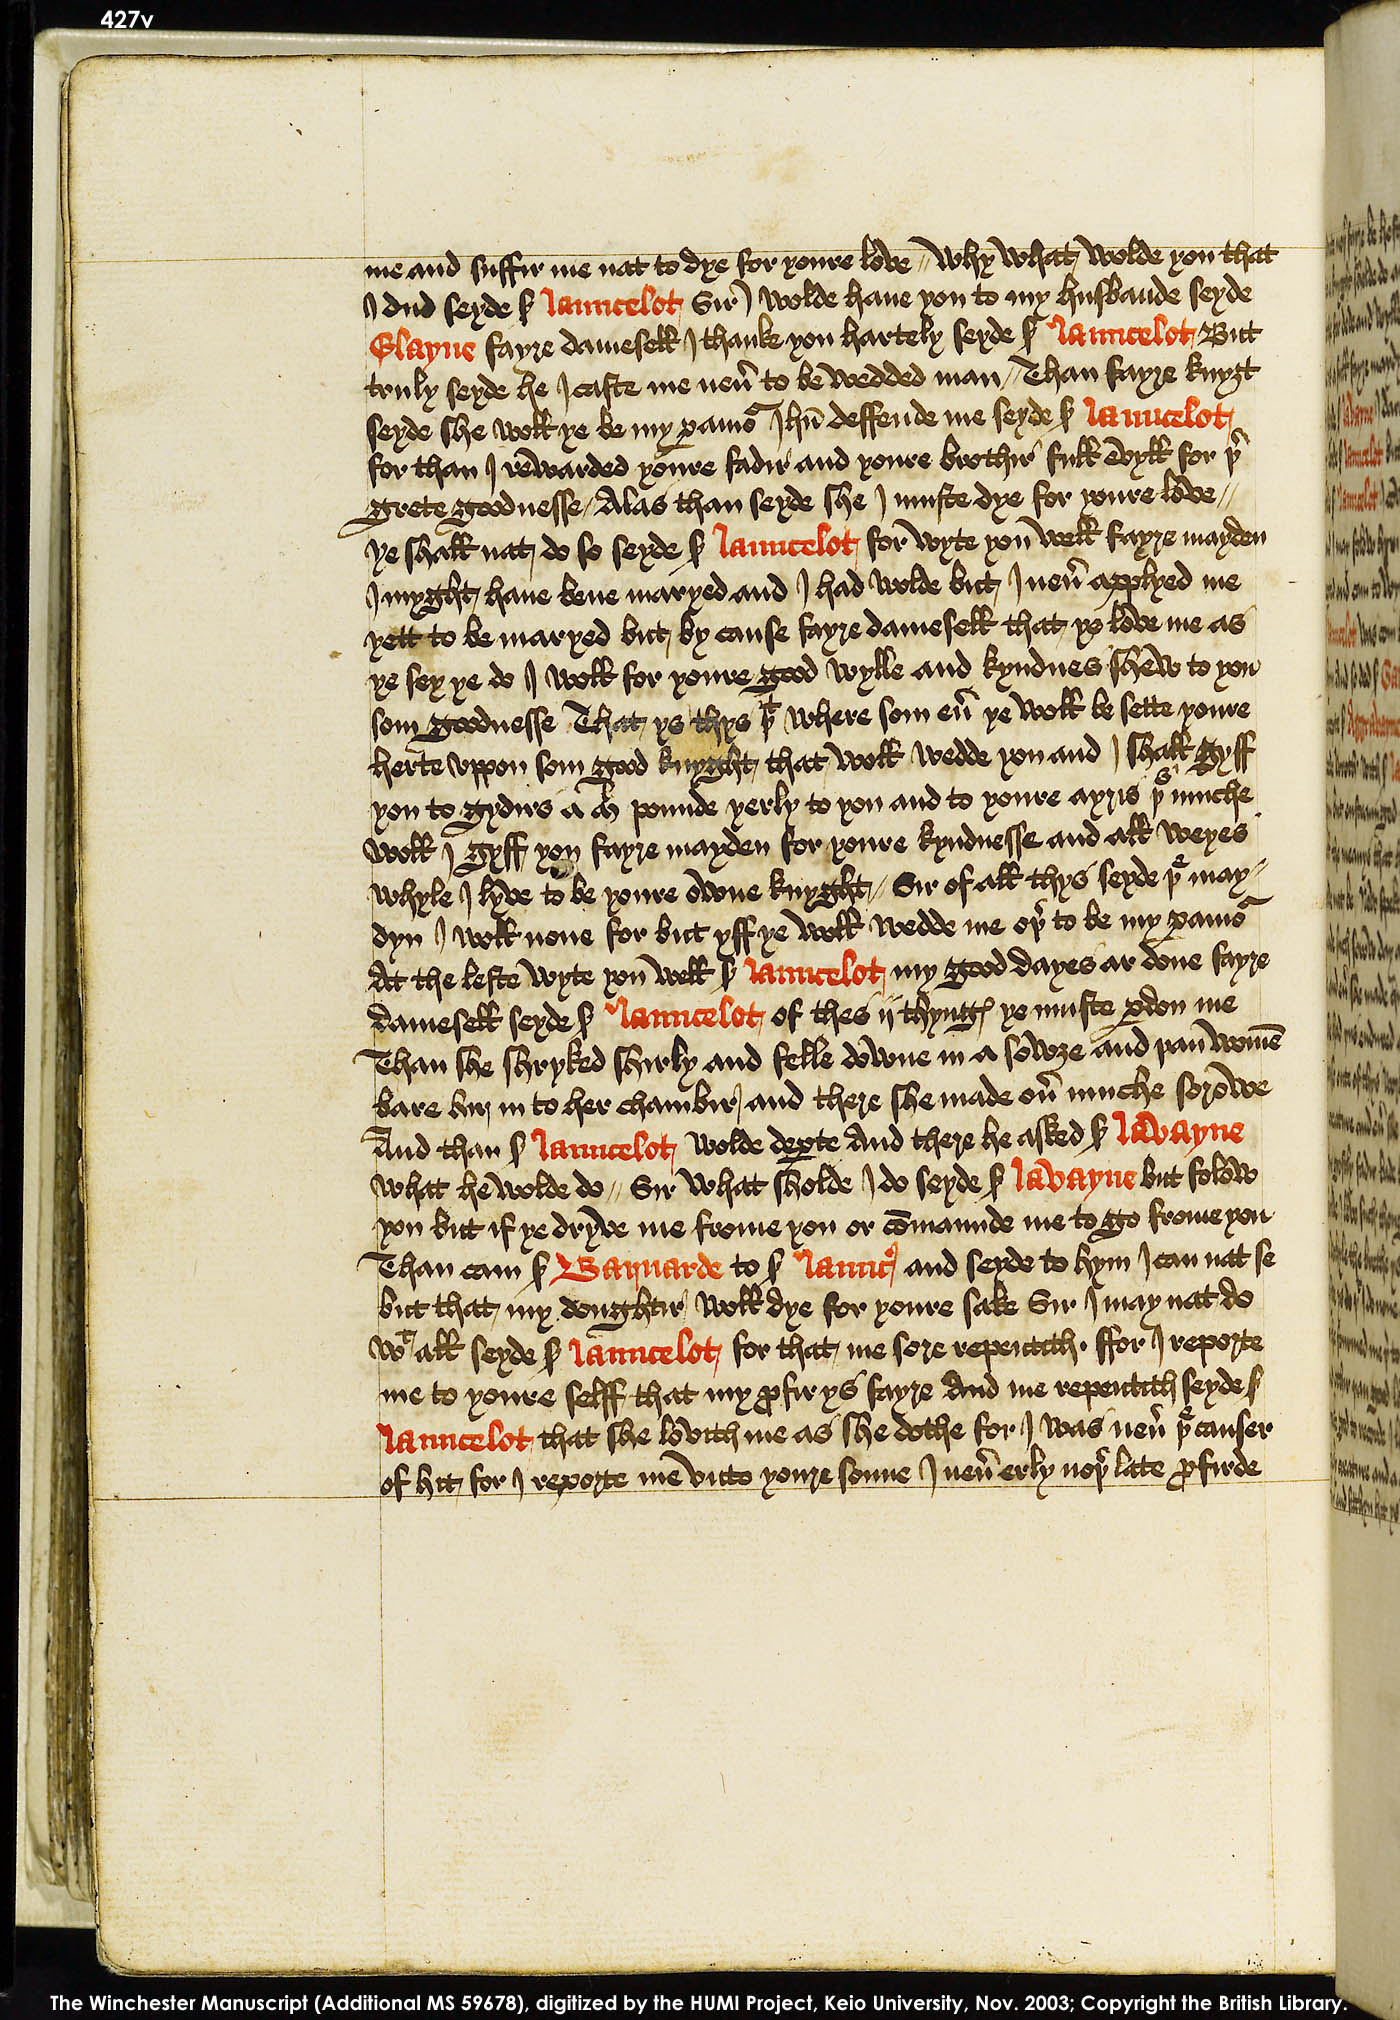 427v
me and suffir me nat to dye for youre love // Why what wolde you that
I dud seyde sʳ launcelot Sir I wolde haue you to my husbande seyde
Elayne fayre damesell I thanke you hartely seyde sʳ launcelot But
truly seyde he I caste me neuʼ to be wedded man // Than fayre knyght
seyde she woll ye be my pamoʳ Jhū deffende me seyde sʳ launcelot
for than I rewarded youre fadir and youre brothir full evyll for þʳ
grete goodnesse / Alas than seyde she I muste dye for youre love //
ye shall nat do so seyde sʳ launcelot for wyte you well fayre mayden
I myght haue bene maryed and I had wolde but I neuʼ applyed me
yett to be maryed but by cause fayre damesell that ye love me as
ye sey ye do I woll for youre good wylle and kyndnes shew to you
som goodnesse That ys thys þᵗ where som euʼ ye woll be sette youre
herte vppon som good knyght that woll wedde you and I shall gyff
you to gydirs a Mˡ pounde yerly to you and to youre ayris þˢ muche
woll I gyff you fayre mayden for youre kyndnesse and all weyes
whyle I lyve to be youre owne knyght // Sir of all thys seyde þᵉ may-
dyn I woll none for but yff ye woll wedde me oþʳ to be my pamoʳ
At the leste wyte you well sʳ launcelot my good dayes ar done fayre
damesell seyde sʳ launcelot of thes ij thyngꝭ ye muste pdon me
Than she shryked shirly and felle downe in a sowze and þan womē
bare hir in to her chambir and there she made ouʼ muche sorowe
And than sʳ launcelot wolde depte And there he asked sʳ lavayne
what he wolde do // Sir what sholde I do seyde sʳ lavayne but folow
you but if ye dryve me frome you or cōmaunde me to go frome you
Than cam sʳ Barnarde to sʳ launcꝰ and seyde to hym I can nat se
but that my doughtir woll dye for youre sake Sir I may nat do
wᵗ all seyde sʳ launcelot for that me sore repentith · ffor I reporte
me to youre selff that my ꝓfir ys fayre And me repentith seyde sʳ
launcelot that she lovith me as she dothe for I was neuʼ þᵉ causer
of hit for I reporte me vnto youre sonne I neuʼ erly noþʳ late ꝓfirde
The Winchester Manuscript (Additional MS 59678), digitized by the HUMI Project, Keio University, Nov. 2003; Copyright the British Library.